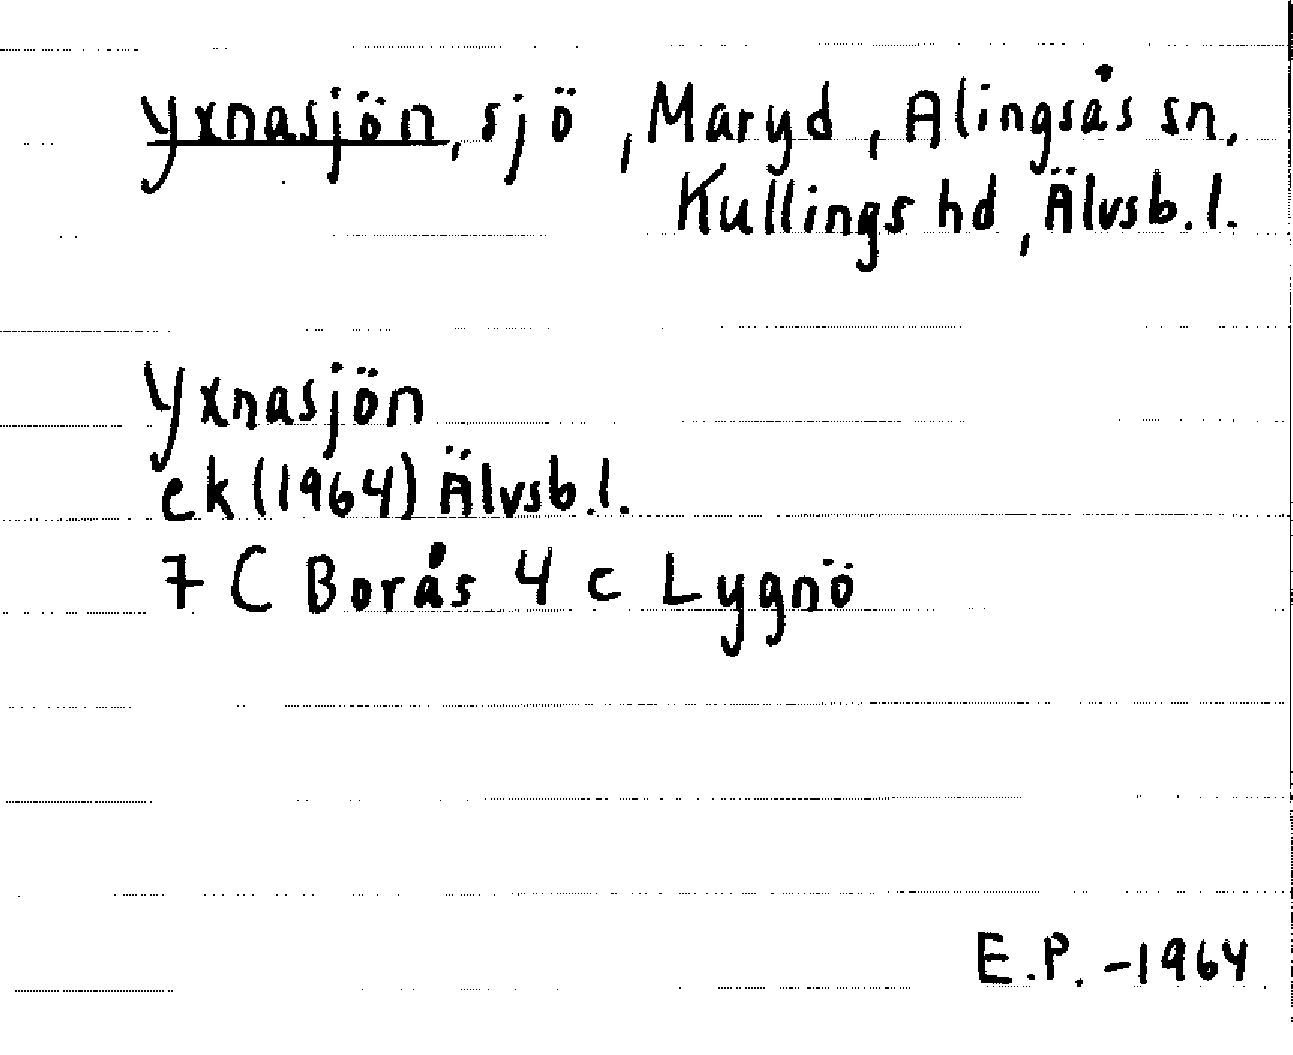 Yxnasjön, sjö, Maryd, Alingsås sn.
Kullings hd, Älvsb.l.
Yxnasjön
ek (1964) Älvsb.l.
7 C Borås 4 c Lygnö
E.P. -1964